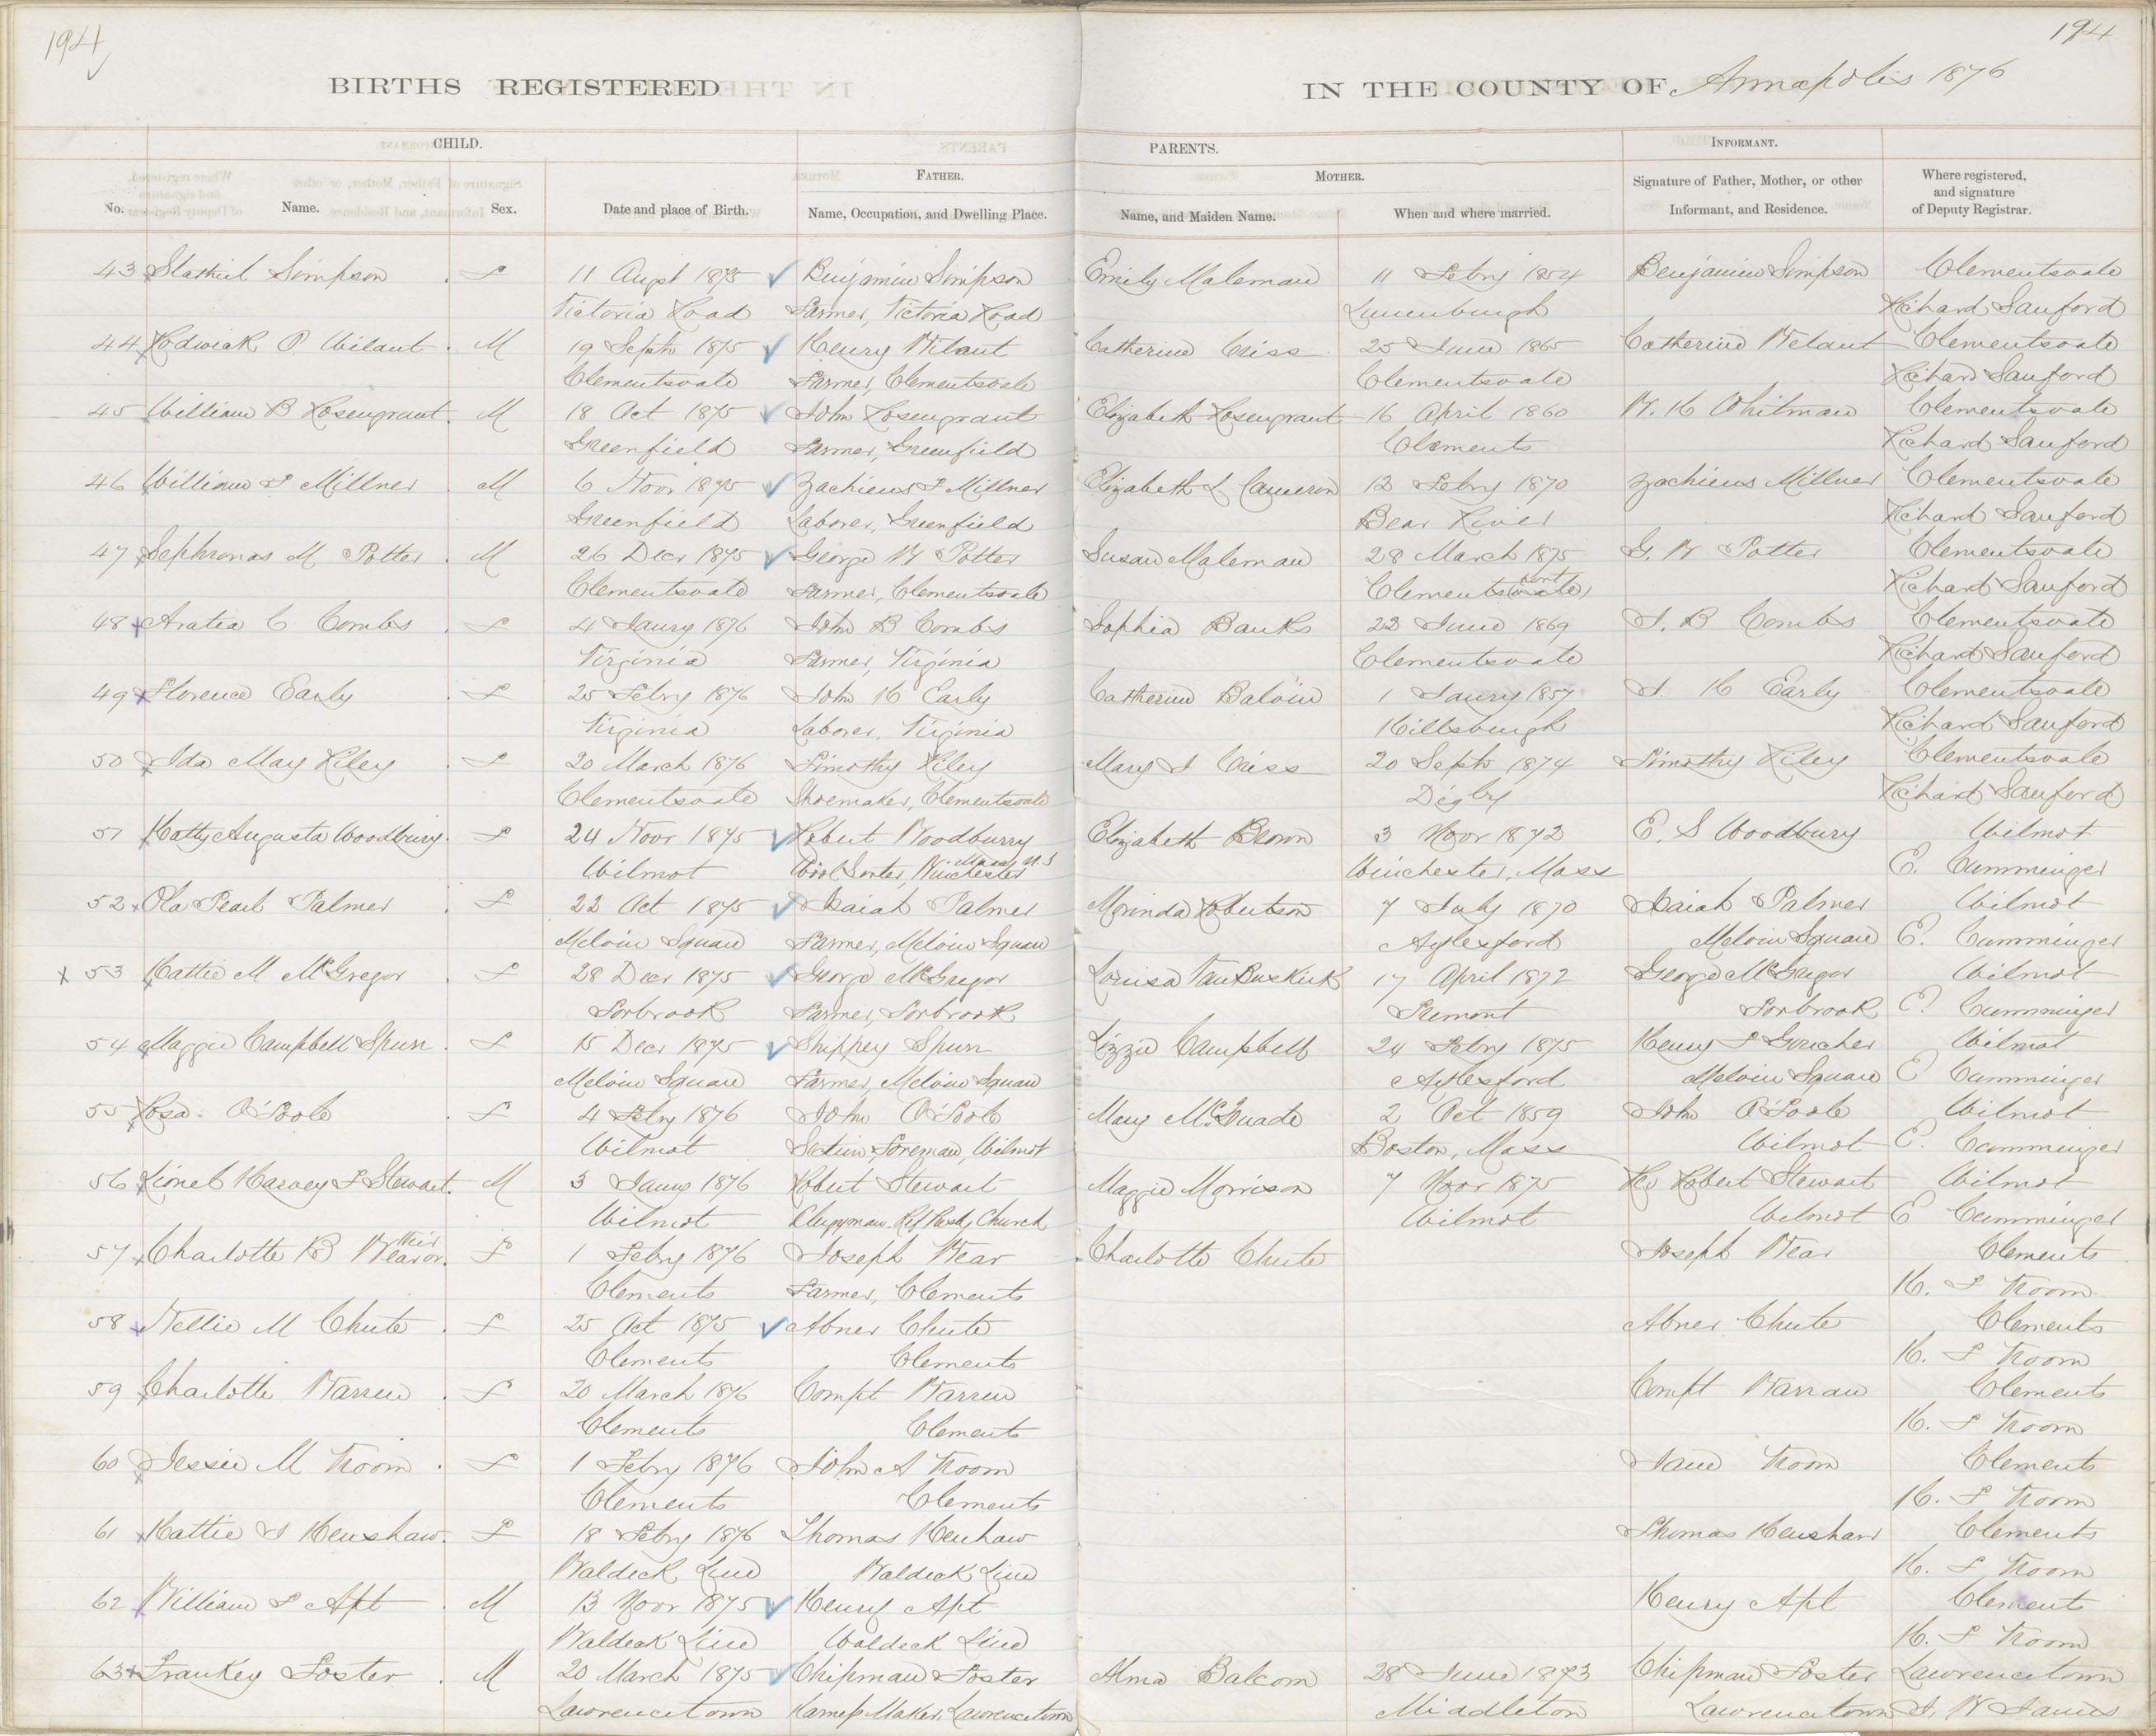 194
194
BIRTHS REGISTERED
IN THE COUNTY OF Annapolis 1876
CHILD.
PARENTS.
INFORMANT.
FATHER.
MOTHER.
No.
Name.
Sex.
Date and place of Birth.
Name, Occupation, and Dwelling Place.
Name, and Maiden Name.
When and where married.
Signature of Father, Mother, or other
Informant, and Residence.
Where registered,
and signature
of Deputy Registrar.
43 Simpson F 11 Augst 1875 Benjamin Simpson Emily Maleman 11 Febry 1854 Benjamin Simpson Clementsvale
Victoria Road Farmer, Victoria Road Lunenburgh Richard Sanford
44 P. Wilant M 19 Septr 1875 Henry Wilant Catherine Criss 25 June 1865 Catherine Welant Clementsvale
Clementsvale Farmer, Clementsvale Clementsvale Richard Sanford
45 William B Rosengrant M 18 Oct 1875 John Rosengrant Elizabeth Rosengrant 16 April 1860 W. H Whitman Clementsvale
Greenfield Farmer, Greenfield Clements Richard Sanford
46 William F Millner M 6 Novr 1875 Zachieus F Millner Elizabeth L Cameron 12 Febry 1870 Zachieus Millner Clementsvale
Greenfield Laborer, Greenfield Bear River Richard Sanford
47 Sephronas M Potter M 26 Decr 1875 George W Potter Susan Maleman 28 March 1875 G. W Potter Clementsvale
Clementsvale Farmer, Clementsvale Clementsport Richard Sanford
48 Aratea C Combs F 4 Jany 1876 John B Combs Sophia Banks 22 June 1869 J. B Combs Clementsvale
Virginia Farmer, Virginia Clementsvale Richard Sanford
49 Florence Early F 25 Febry 1876 John H Early Catherine Balvin 1 Jany 1857 J. H Early Clementsvale
Virginia Laborer, Virginia Hillsburgh Richard Sanford
50 Ida May Riley F 20 March 1876 Timothy Riley Mary J Criss 20 Septr 1874 Timothy Riley Clementsvale
Clementsvale Shoemaker, Clementsvale Digby Richard Sanford
51 Hatty Augusta Woodbury F 24 Novr 1875 Robert Woodburry Elizabeth Brown 3 Novr 1872 E. S Woodbury Wilmot
Wilmot Wool Sorter, Winchester Mass U.S Winchester, Mass E. Cumminger
52 Ola Pearl Palmer F 22 Oct 1875 Isaiah Palmer Morinda Robertson 7 July 1870 Isaiah Palmer Wilmot
Melvin Square Farmer, Melvin Square Aylesford Melvin Square E. Cumminger
X 53 Hattie M McGregor F 28 Decr 1875 George McGregor Louisa VanBuskirk 17 April 1872 George McGregor Wilmot
Torbrook Farmer, Torbrook Tremont Torbrook E. Cumminger
54 Maggie Campbell Spurr F 15 Decr 1875 Shippey Spurr Lizzie Campbell 24 Febry 1875 Henry F Goucher Wilmot
Melvin Square Farmer, Melvin Square Aylesford Melvin Square E Cumminger
55 Rosa O'Toole F 4 Febry 1876 John O'Toole Mary McQuade 2 Oct 1859 John O'Toole Wilmot
Wilmot Section Foreman, Wilmot Boston, Mass Wilmot E. Cumminger
56 Lionel Harvey F Stewart M 3 Jany 1876 Robert Stewart Maggie Morrison 7 Novr 1875 Rev Robert Stewart Wilmot
Wilmot Clergyman, Ref Presby Church Wilmot Wilmot E Cumminger
57 Charlotte B Wear or Weir F 1 Febry 1876 Joseph Wear Charlotte Chute Joseph Wear Clements
Clements Farmer, Clements H. F Vroom
58 Nellie M Chute F 25 Oct 1875 Abner Chute Abner Chute Clements
Clements Clements H. F Vroom
59 Charlotte Warren F 20 March 1876 Compt Warren Compt Warran Clements
Clements Clements H. F Vroom
60 Jessie M Vroom F 1 Febry 1876 John A Vroom Jane Vroom Clements
Clements Clements H. F Vroom
61 Hattie J Henshaw F 18 Febry 1876 Thomas Henhaw Thomas Henshaw Clements
Waldeck Line Waldeck Line H. F Vroom
62 William F Apt M 13 Novr 1875 Henry Apt Henry Apt Clements
Waldeck Line Waldeck Line H. F Vroom
63 Frankey Foster M 20 March 1875 Chipman Foster Alma Balcom 28 June 1873 Chipman Foster Lawrencetown
Lawrencetown Harness Maker, Lawrencetown Middleton Lawrencetown J. W James